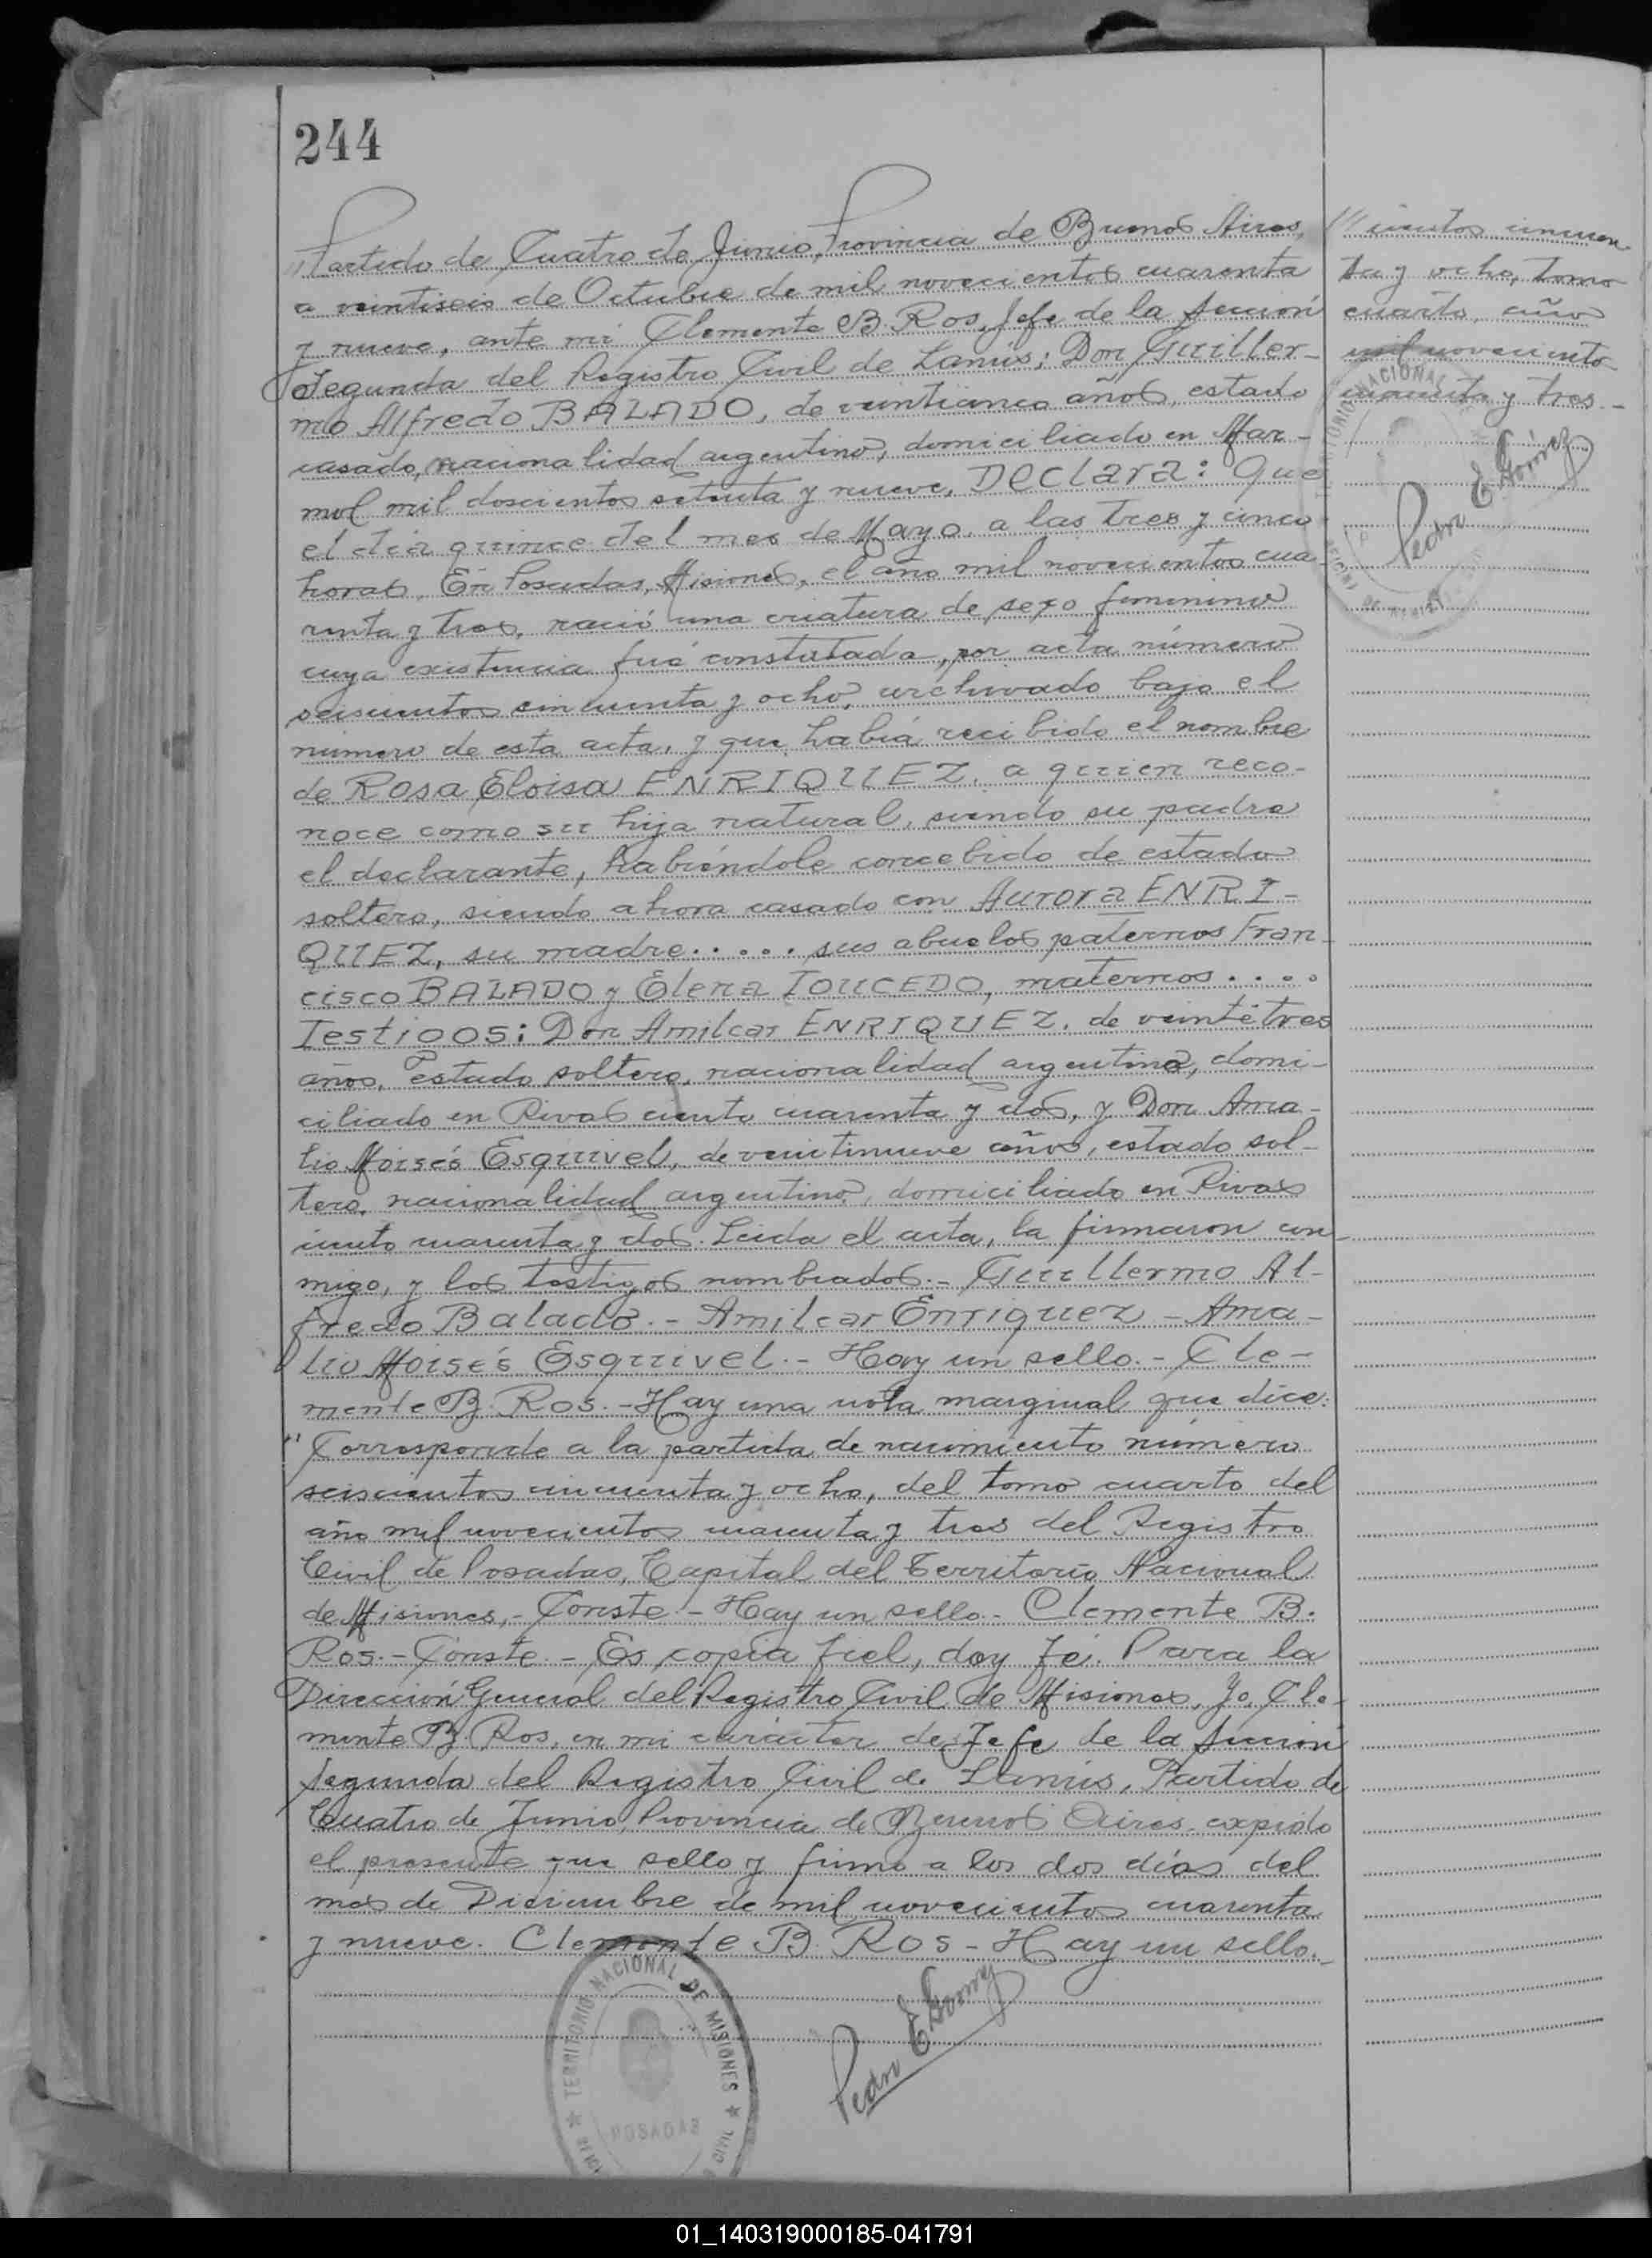 244
"Partido de Cuatro de Junio, Provincia de Buenos Aires,
a veintiseis de Octubre de mil novecientos cuarenta
y nueve, ante mi Clemente B. Ros, Jefe de la Sección
Segunda del Registro Civil de Lanús; Don Guiller-
mo Alfredo BALADO, de veinticinco años, estado
casado, nacionalidad argentino, domiciliado en Mar-
mol mil doscientos setenta y nueve, Declara: Que
el día quince del mes de Mayo a las tres y cinco
horas, En Posadas, Misiones, el año mil novecientos cua-
renta y tres, nació una criatura de sexo femenino
cuya existencia fué constatada, por acta número
seiscientos cincuenta y ocho, archivado bajo el
número de esta acta, y que había recibido el nombre
de Rosa Eloisa ENRIQUEZ, a quien reco-
noce como su hija natural, siendo su padre
el declarante, habiéndole concebido de estado
soltero, siendo ahora casado con Aurora ENRI-
QUEZ, su madre..... sus abuelos paternos Fran-
cisco BALADO y Elena TOUCEDO, maternos....
Testigos: Don Amilcar ENRIQUEZ, de veintitres
años, estado soltero, nacionalidad argentina, domi-
ciliado en Rivas ciento cuarenta y dos, y Don Ama-
lio Moisés Esquivel, de veintinueve años, estado sol-
tero, nacionalidad argentino, domiciliado en Rivas
ciento cuarenta y dos. Leida el acta, la firmaron con-
migo, y los testigos nombrados.- Guillermo Al-
fredo Balado.- Amilcar Enriquez - Ama-
lio Moisés Esquivel.- Hay un sello.- Cle-
mente B. Ros.- Hay una nota marginal que dice:
"Corresponde a la partida de nacimiento número
seiscientos cincuenta y ocho, del tomo cuarto del
año mil novecientos cuarenta y tres del Registro
Civil de Posadas, Capital del Territorio Nacional
de Misiones,- Conste!- Hay un sello.- Clemente B.
Ros.- Conste.- Es copia fiel, doy fé. Para la
Dirección General del Registro Civil de Misiones, Yo, Cle-
mente B. Ros, en mi carácter de Jefe de la Sección
Segunda del Registro Civil de Lanús, Partido de
Cuatro de Junio, Provincia de Buenos Aires, expido
el presente que sello y firmo a los dos días del
mes de Diciembre de mil novecientos cuarenta
y nueve. Clemente B. Ros - Hay un sello.-
Pedro E. Gomez
TERRITORIO NACIONAL DE MISIONES
POSADAS
///cientos cincuen
ta y ocho, tomo
cuarto, año
mil novecientos
cuarenta y tres.-
NACIONAL
Pedro E. Gómez
01_140319000185-041791